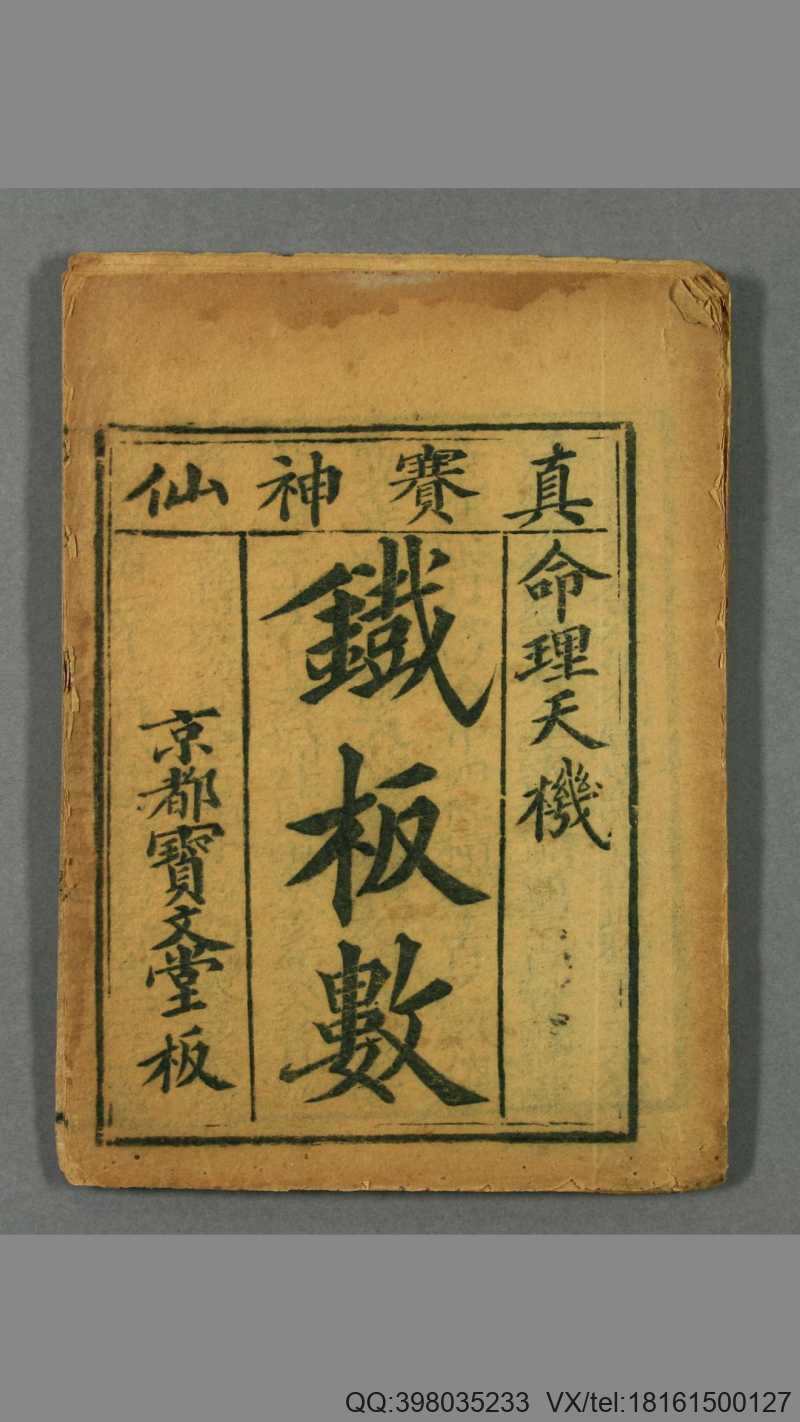 真賽神仙
命理天機
鐵板數
京都寶文堂板
QQ:398035233 VX/tel:18161500127